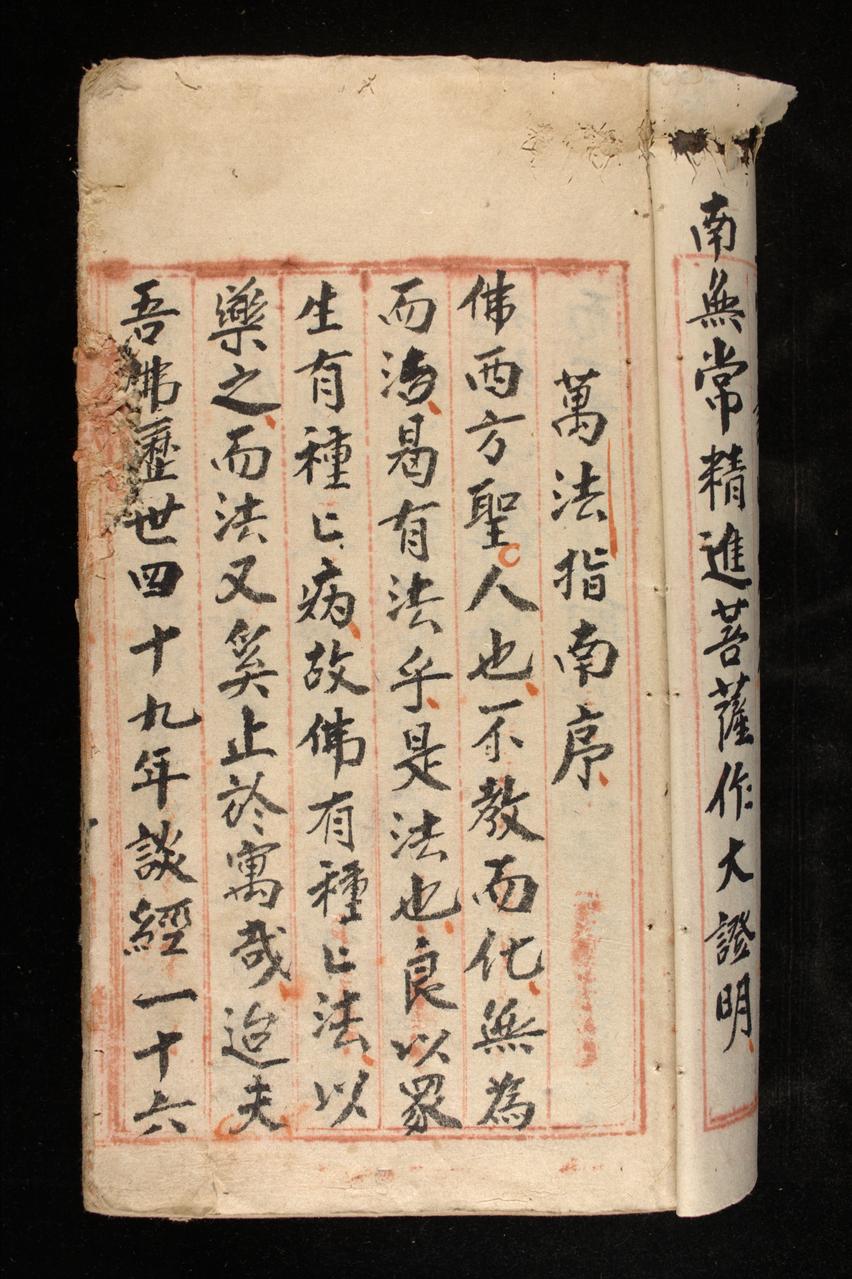 南無常精進菩薩作大證明
萬法指南序
佛西方聖人也不教而化無為
而治曷有法乎是法也良以眾
生有種〻病故佛有種〻法以
藥之而法又奚止於萬哉迨夫
吾佛歷世四十九年談經一十六